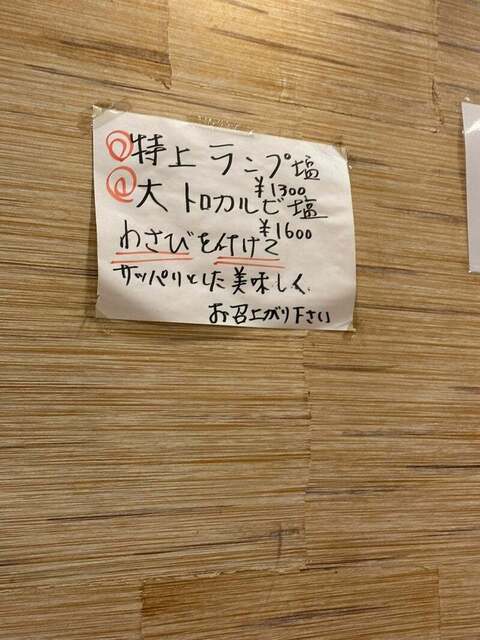 ◎特上 ランプ塩
¥1300
◎大トロカルビ塩
¥1600
わさびを付けて
サッパリとした美味しく
お召上がり下さい